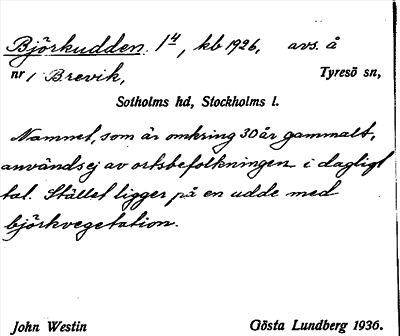 Björkudden. 1⁴, kb 1926, avs. å
nr 1 Brevik, Tyresö sn,
Sotholms hd, Stockholms l.
Namnet, som är omkring 30 år gammalt,
användsej av ortsbefolkningen i dagligt
tal. Stället ligger på en udde med
björkvegetation.
John Westin Gösta Lundberg 1936.